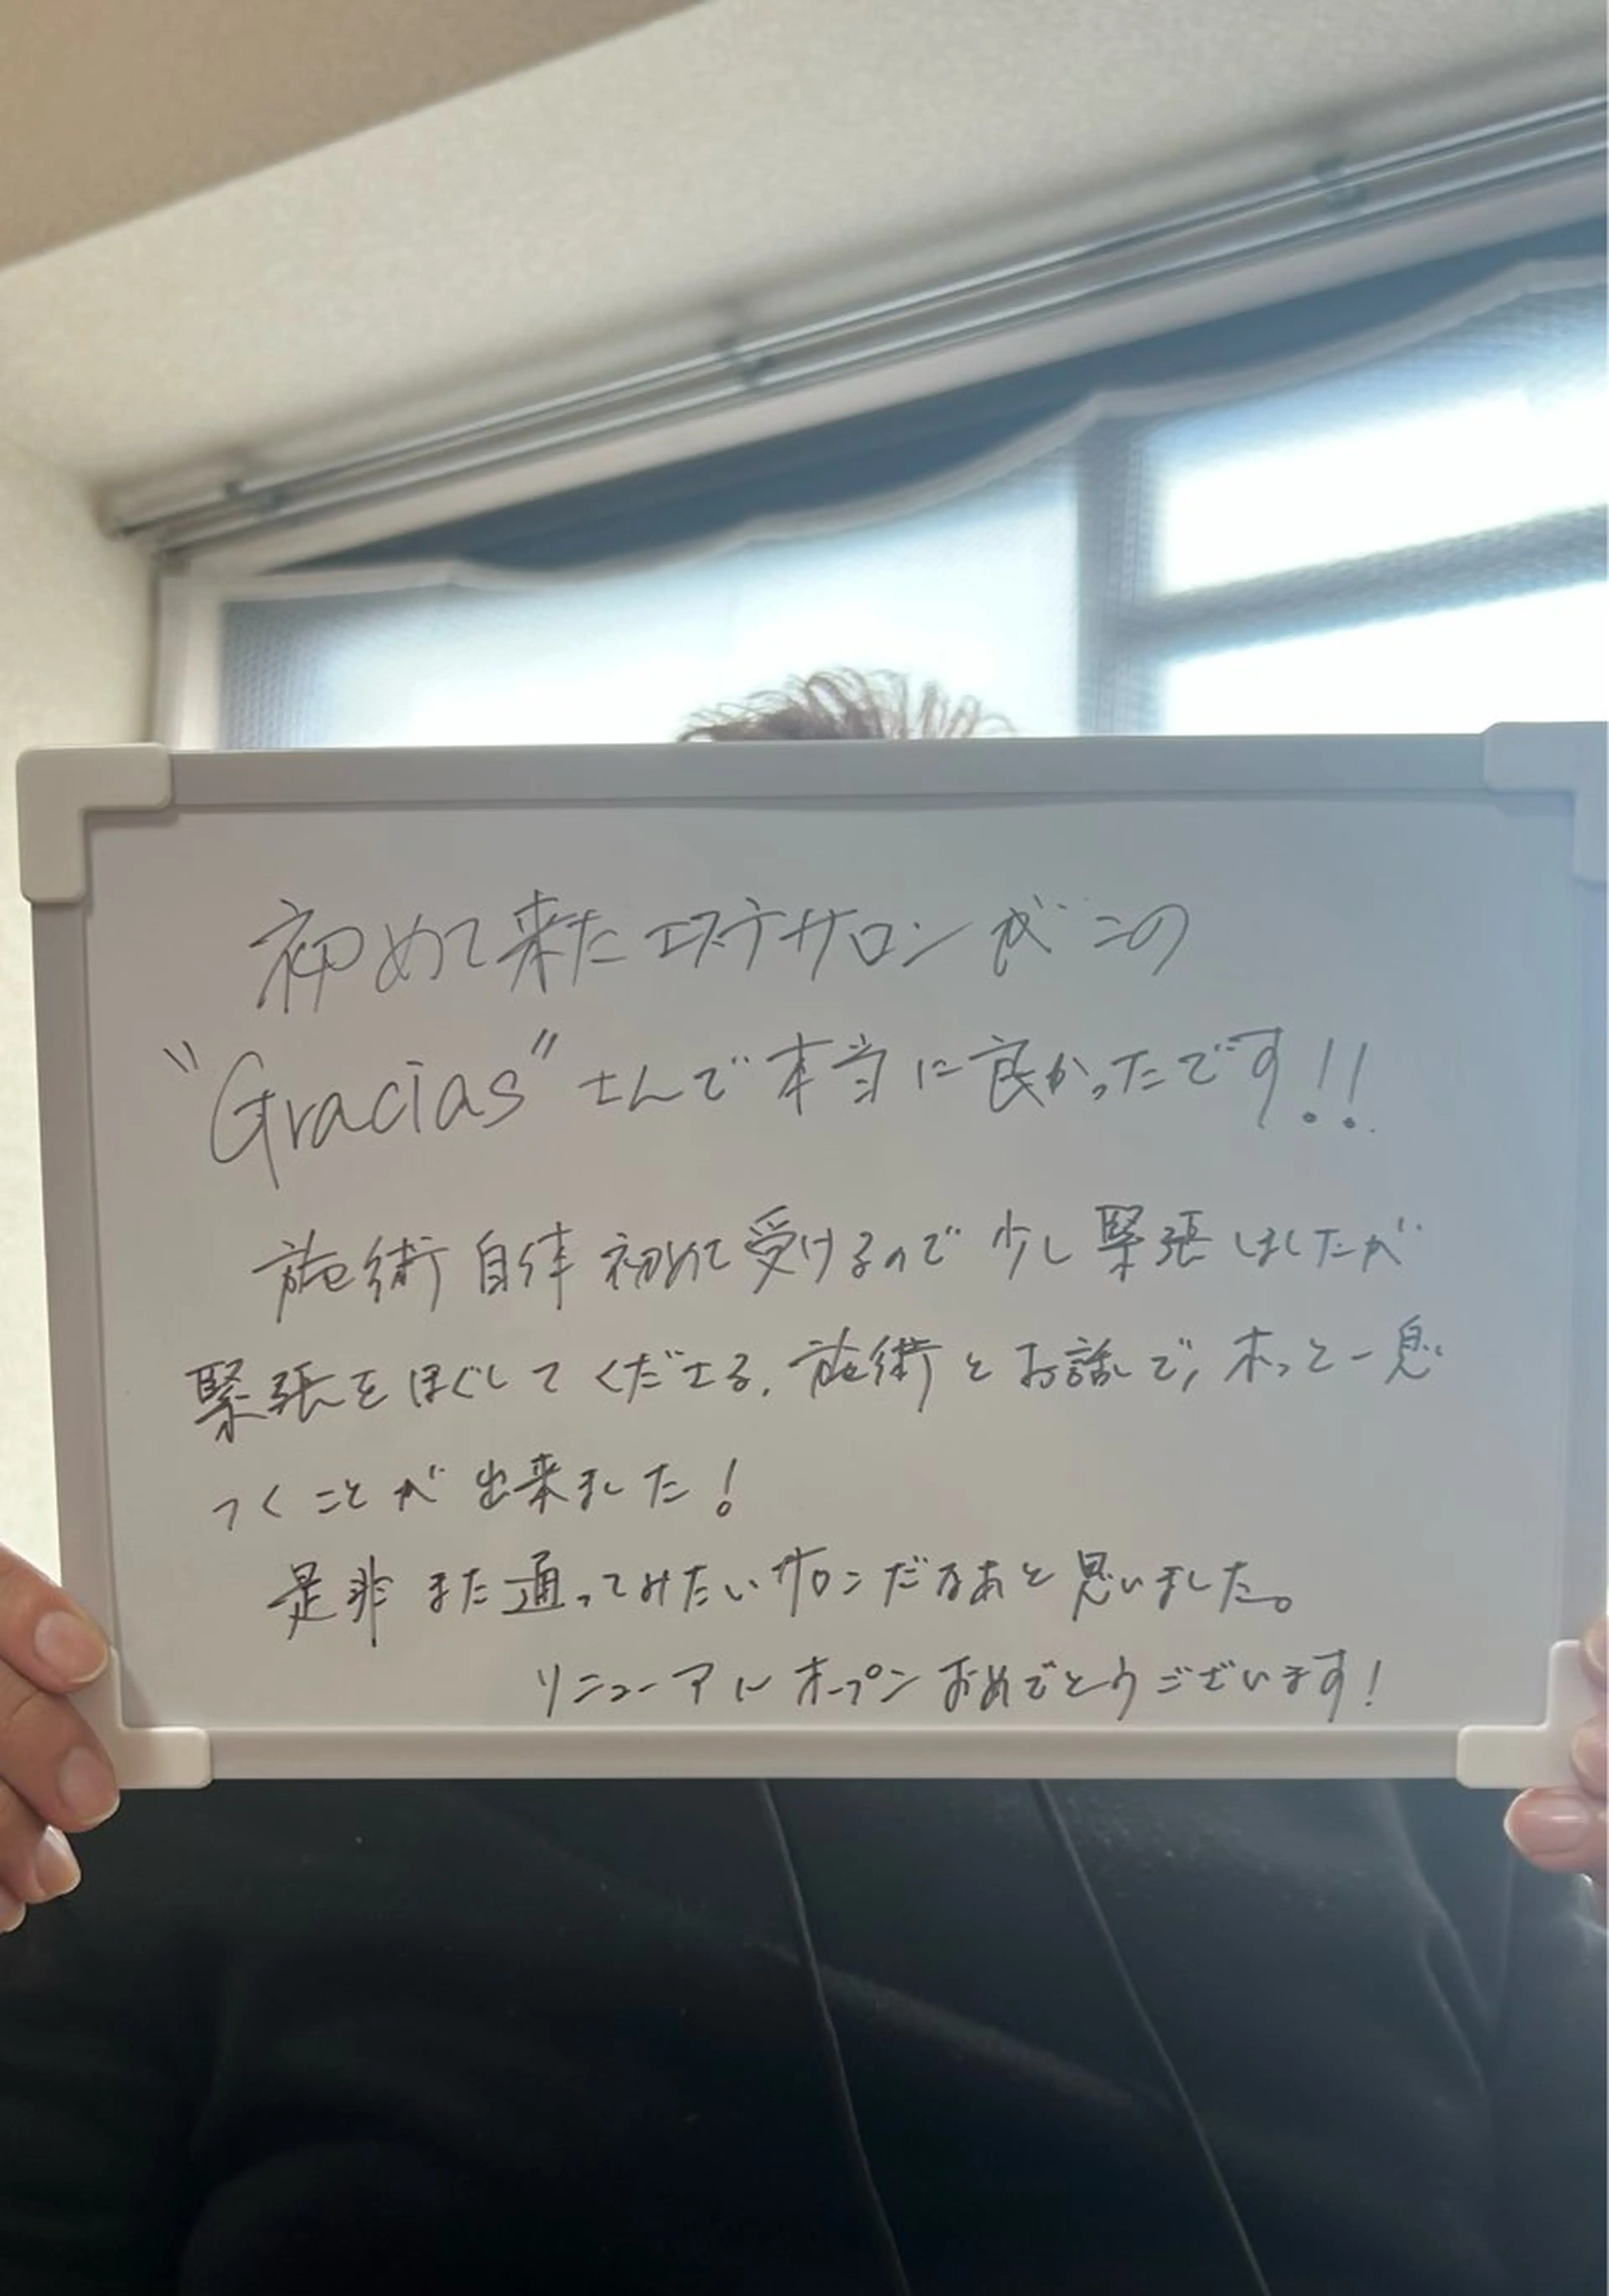 初めて来たエステサロンがこの
"Gracias"さんで本当に良かったです!!
施術自体初めて受けるので少し緊張しましたが
緊張をほぐしてくださる、施術とお話しで、ホッと一息
つくことが出来ました!
是非また通ってみたいサロンだなあと思いました。
リニューアルオープンおめでとうございます!